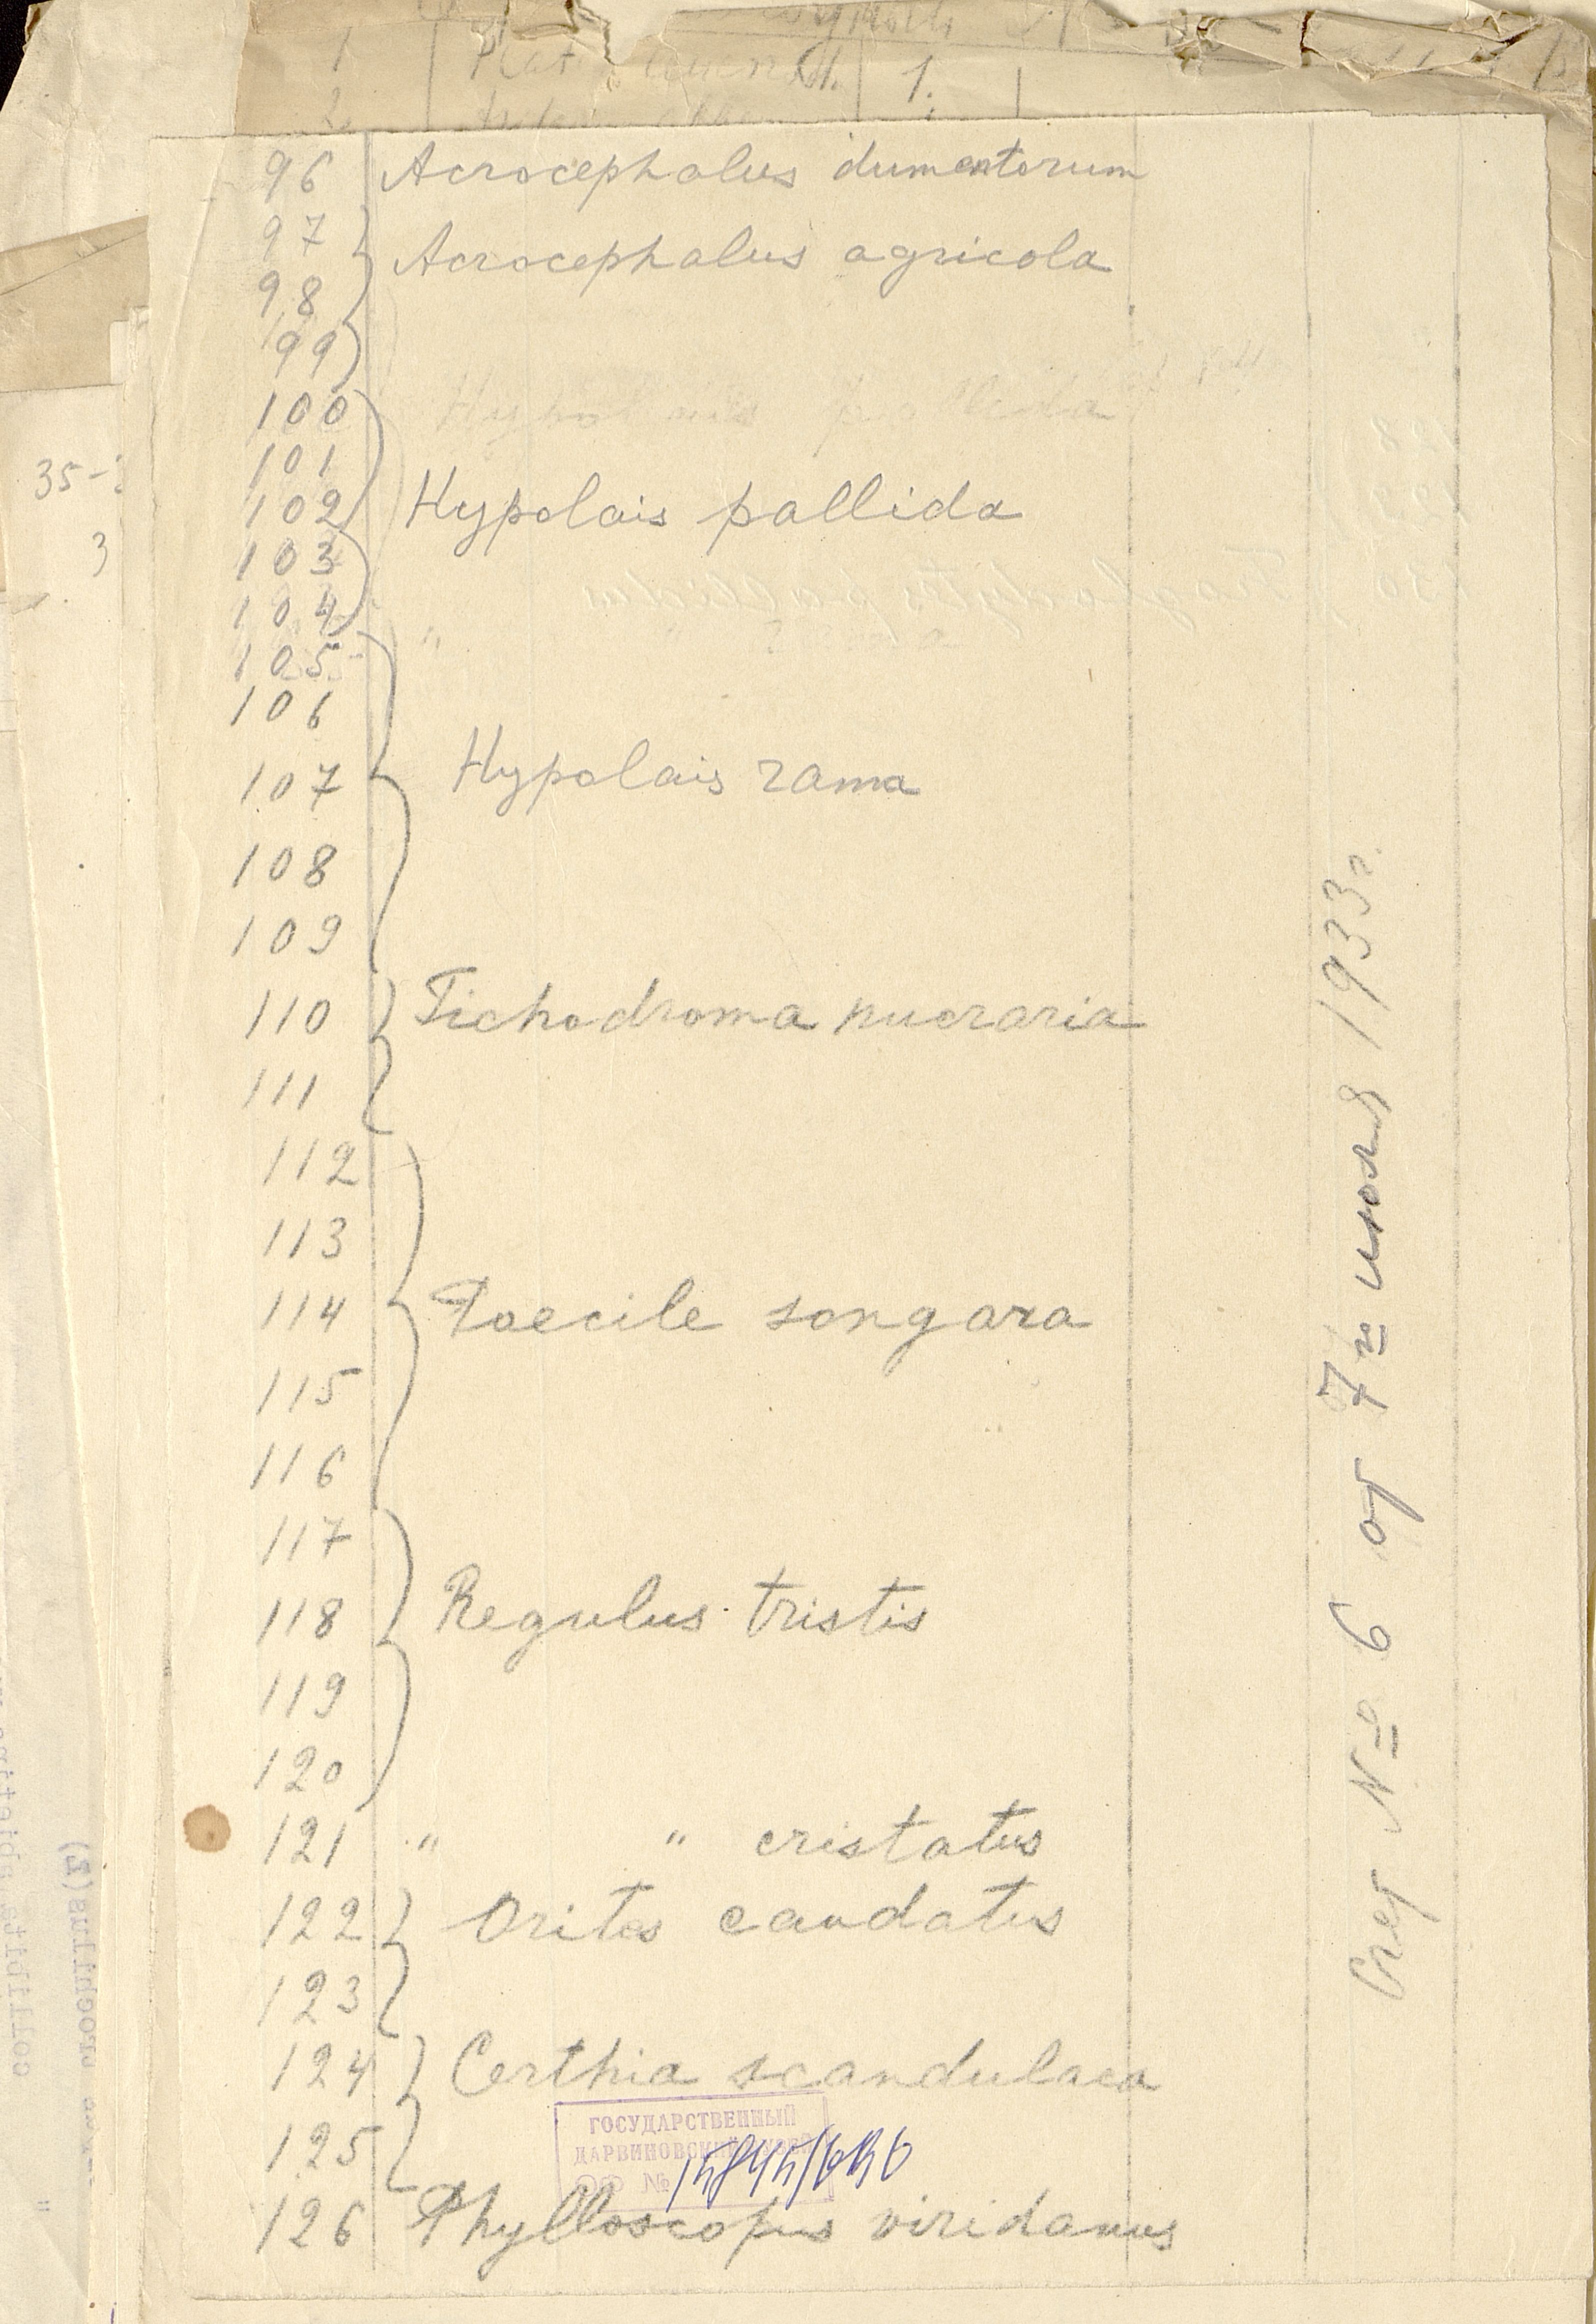 1.
96 Acrocephalus dumentorum
97
Acrocephalus agricola
98
99
100
Hypolais pallida
101
35-
102 Hypolais pallida
103
3
104
"
105
106
107 Hypolais rama
108
109
110 Tichodroma mucraria
111
112
113
114 Poecile songara
115
116
117
118 Regulus tristis
119
120
121 " " cristatus
122 Orites caudatus
123
124 Certhia scandulaca
125
ГОСУДАРСТВЕННЫЙ
ДАРВИНОВСКИЙ МУЗЕЙ
ОФ №
126 Phylloscopus viridanus
Счет № 6 от 7го июля 1933г.